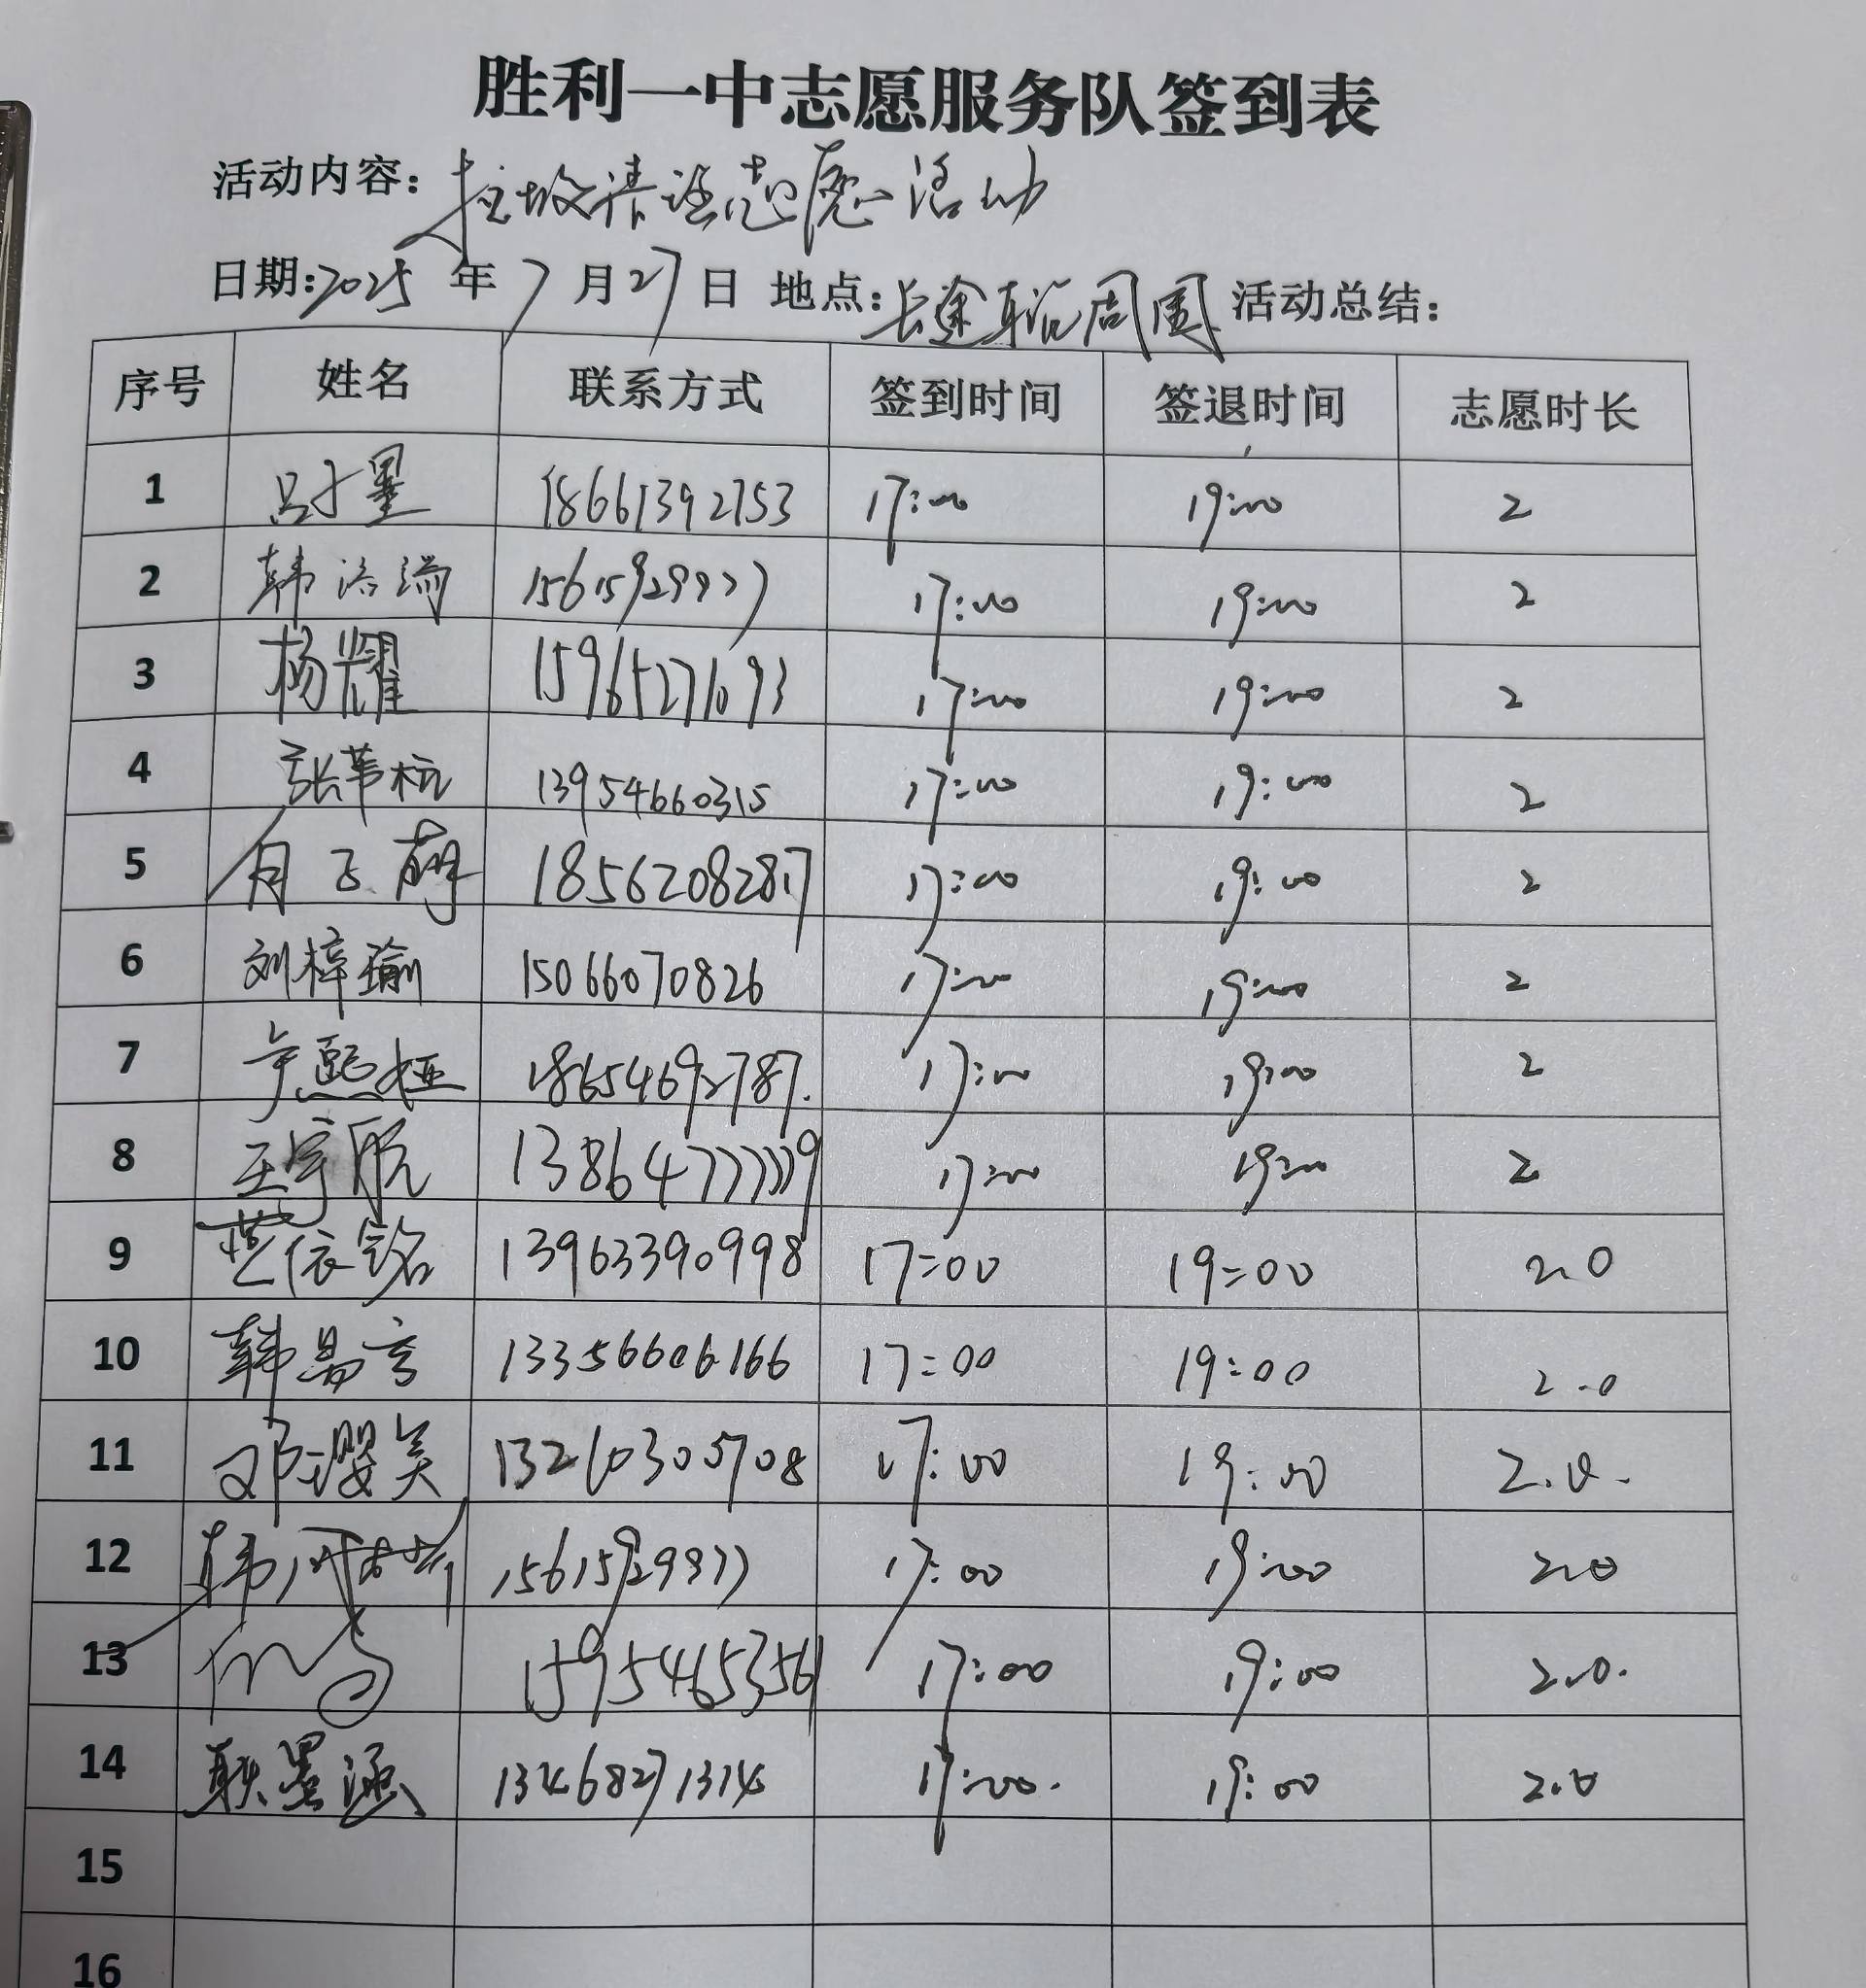 胜利一中志愿服务队签到表
活动内容：垃圾清理志愿活动
日期：2025年7月27日 地点：长途车站周围 活动总结：
序号 姓名 联系方式 签到时间 签退时间 志愿时长
1 18661392753 17:00 19:00 2
2 韩 15615929977 17:00 19:00 2
3 杨耀 15965271093 17:00 19:00 2
4 张苇杭 13954660315 17:00 19:00 2
5 18562082817 17:00 19:00 2
6 刘梓瑜 15066070826 17:00 19:00 2
7 18654692787. 17:00 19:00 2
8 王宇航 17:00 19:00 2
9 依铭 13963390998 17:00 19:00 2.0
10 韩易言 13356606166 17:00 19:00 2.0
11 邓璎芙 13210305708 17:00 19:00 2.0.
12 韩 15615929977 17:00 19:00 2.0
13 15954653561 17:00 19:00 2.0.
14 耿墨涵 13468271314 17:00. 19:00 2.0
15
16